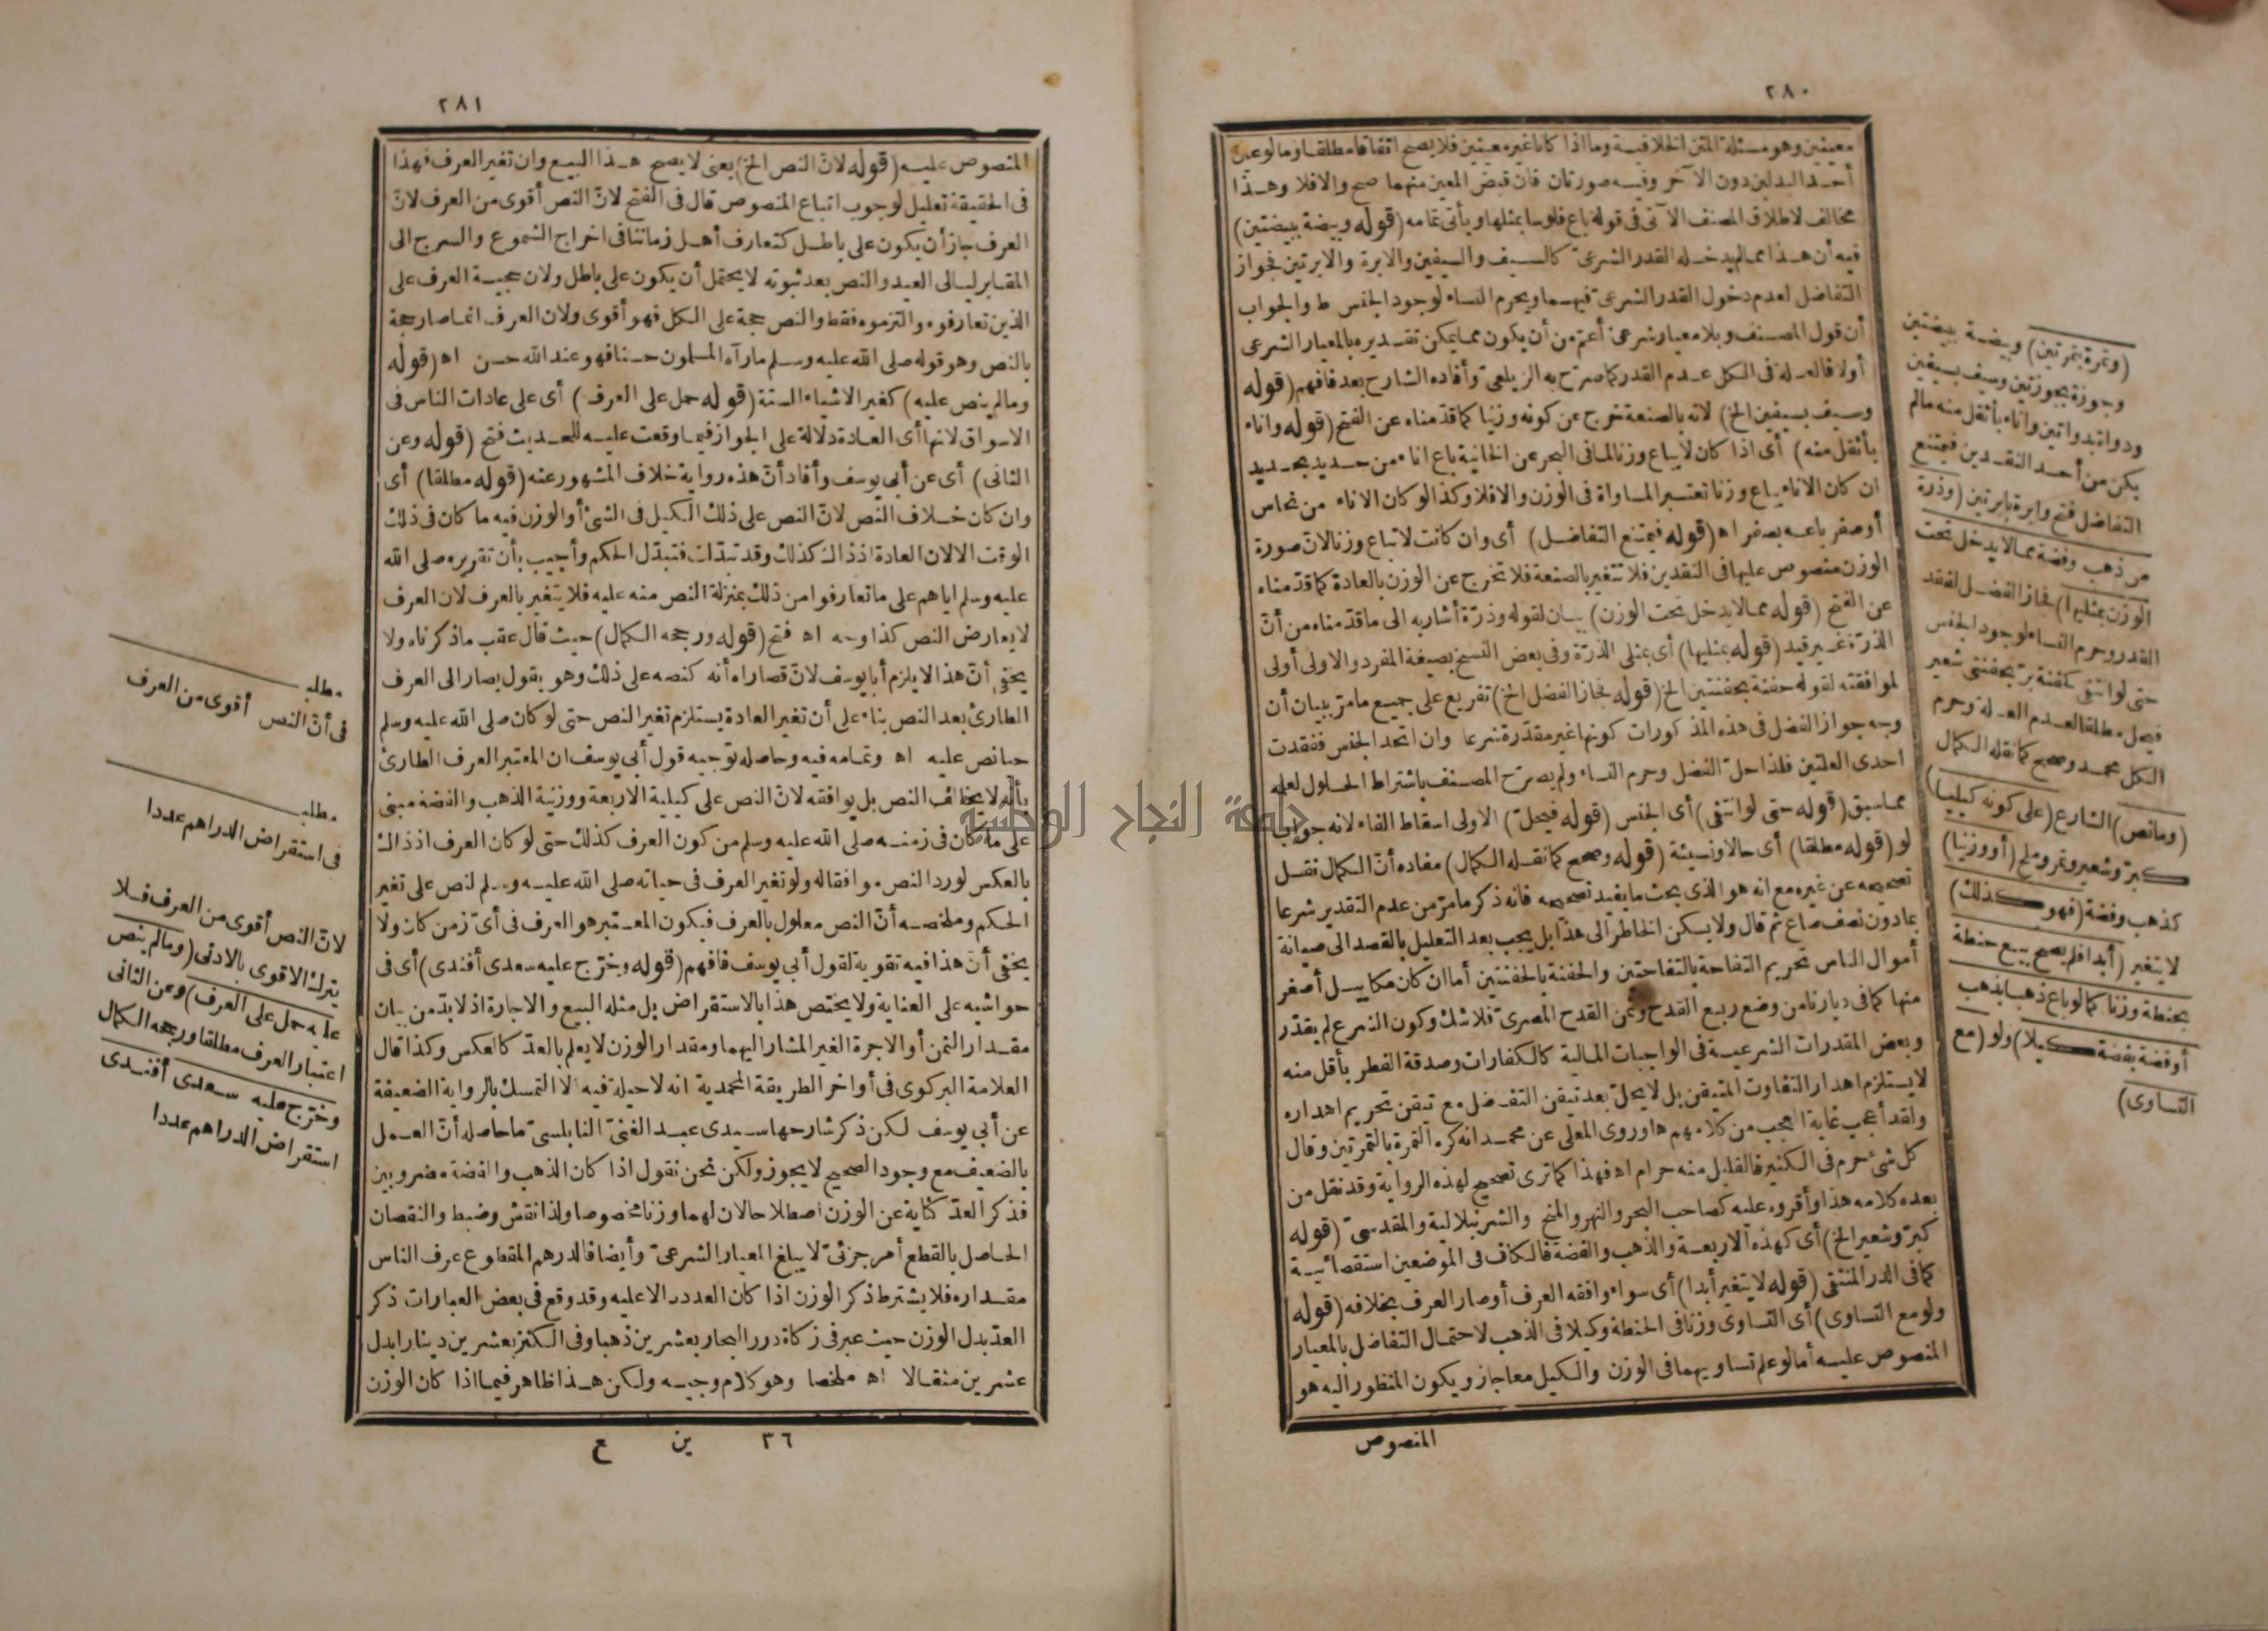 ٢٨٠
معينين وهو مسئلة المتن الخلافية وما اذا كانا غير معينين فلا يصح اتفاقا مطلقا وما لو عين
أحد البدلين دون الآخر وفيه صورتان فان قبض المعين منهما صح والا فلا وهذا
مخالف لاطلاق المصنف الآتى فى قوله باع فلوسا بمثلها ويأتى تمامه (قوله وبيضة ببيضتين)
فيه أن هذا مما لم يدخله القدر الشرعىّ كالسيف والسيفين والابرة والابرتين فجواز
التفاضل لعدم دخول القدر الشرعىّ فيهما ويحرم النساء لوجود الجنس ط والجواب
أن قول المصنف وبلا معيار شرعىّ أعمّ من أن يكون مما يمكن تقديره بالمعيار الشرعى
أولا فالعلة فى الكل عدم القدر كما صرّح به الزيلعىّ وأفاده الشارح بعد فافهم (قوله
وسيف بسيفين الخ) لانه بالصنعة خرج عن كونه وزنيا كما قدّمناه عن الفتح (قوله واناء
بأثقل منه) أى اذا كان لا يباع وزنا لما فى البحر عن الخانية باع اناء من حديد بحديد
ان كان الاناء يباع وزنا تعتبر المساواة فى الوزن والا فلا وكذا لو كان الاناء من نحاس
أو صفر باعه بصفر اه (قوله فيمتنع التفاضل) أى وان كانت لا تباع وزنا لانّ صورة
الوزن منصوص عليها فى النقدين فلا تتغير بالصنعة فلا تخرج عن الوزن بالعادة كما قدّمناه
عن الفتح (قوله مما لا يدخل تحت الوزن) بيان لقوله وذرّة أشار به الى ما قدّمناه من أنّ
الذرّة غير قيد (قوله بمثليها) أى بمثلى الذرّة وفى بعض النسخ بصيغة المفرد والاولى أولى
لموافقته لقوله حفنة بحفنتين الخ (قوله فجاز الفضل الخ) تفريع على جميع ما مرّ ببيان أن
وجه جواز الفضل فى هذه المذكورات كونها غير مقدّرة شرعا وان اتحد الجنس ففقدت
احدى العلتين فلذا حلّ الفضل وحرم النساء ولم يصرّح المصنف باشتراط الحلول لعلمه
مما سبق (قوله حتى لو انتفى) أى الجنس (قوله فيحلّ) الاولى اسقاط الفاء لانه جواب
لو (قوله مطلقا) أى حالا ونسيئة (قوله وصحح كما نقله الكمال) مفاده أنّ الكمال نقل
تصحيحه عن غيره مع انه هو الذى بحث ما يفيد تصحيحه فانه ذكر ما مرّ من عدم التقدير شرعا
بما دون نصف صاع ثم قال ولا يسكن الخاطر الى هذا بل يجب بعد التعليل بالقصد الى صيانة
أموال الناس تحريم التفاحة بالتفاحتين والحفنة بالحفنتين أما ان كان مكاييل أصغر
منها كما فى ديارنا من وضع ربع القدح وثمن القدح المصرىّ فلا شك وكون الشرع لم يقدّر
وبعض المقدرات الشرعية فى الواجبات المالية كالكفارات وصدقة الفطر بأقل منه
لا يستلزم اهدار التفاوت المتيقن بل لا يحلّ بعد تيقن التفاضل مع تيقن تحريم اهداره
ولقد أعجب غاية العجب من كلامهم هذا وروى المعلى عن محمد انه كره التمرة بالتمرتين وقال
كل شئ حرم فى الكثير فالقليل منه حرام اه فهذا كما ترى تصحيح لهذه الرواية وقد نقل من
بعده كلامه هذا وأقروه عليه كصاحب البحر والنهر والمنح والشرنبلالية والمقدسىّ (قوله
كبرّ وشعير الخ) أى كهذه الاربعة والذهب والفضة فالكاف فى الموضعين استقصائية
كما فى الدر المنتقى (قوله لا يتغير أبدا) أى سواء وافقه العرف أو صار العرف بخلافه (قوله
ولو مع التساوى) أى التساوى وزنا فى الحنطة وكيلا فى الذهب لاحتمال التفاضل بالمعيار
المنصوص عليه أما لو علم تساويهما فى الوزن والكيل معا جاز ويكون المنظور اليه هو
المنصوص
(وتمرة بتمرتين) وبيضة ببيضتين
وجوزة بجوزتين وسيف بسيفين
ودواة بدواتين واناء بأثقل منه ما لم
يكن من أحد النقدين فيمتنع
التفاضل فتح وابرة بابرتين (وذرة
من ذهب وفضة مما لا يدخل تحت
الوزن بمثليها) فجاز الفضل لفقد
القدر وحرم النساء لوجود الجنس
حتى لو انتفى كحفنة برّ بحفنتى شعير
فيحل مطلقا لعدم العلة وحرم
الكل محمد وصحح كما نقله الكمال
(وما نص) الشارع (على كونه كيليا)
كبرّ وشعير وتمر وملح (أو وزنيا)
كذهب وفضة (فهو كذلك)
لا يتغير (أبدا فلم يصح بيع حنطة
بحنطة وزنا كما لو باع ذهبا بذهب
أو فضة بفضة كيلا) ولو (مع
التساوى)
٢٨١
المنصوص عليه (قوله لانّ النص الخ) يعنى لا يصح هذا البيع وان تغير العرف فهذا
فى الحقيقة تعليل لوجوب اتباع المنصوص قال فى الفتح لانّ النص أقوى من العرف لانّ
العرف جاز أن يكون على باطل كتعارف أهل زماننا فى اخراج الشموع والسرج الى
المقابر ليالى العيد والنص بعد ثبوته لا يحتمل أن يكون على باطل ولان حجية العرف على
الذين تعارفوه والتزموه فقط والنص حجة على الكل فهو أقوى ولان العرف انما صار حجة
بالنص وهو قوله صلى الله عليه وسلم ما رآه المسلمون حسنا فهو عند الله حسن اه (قوله
وما لم ينص عليه) كغير الاشياء الستة (قوله حمل على العرف) أى على عادات الناس فى
الاسواق لانها أى العادة دلالة على الجواز فيما وقعت عليه للحديث فتح (قوله وعن
الثانى) أى عن أبى يوسف وأفاد أنّ هذه رواية خلاف المشهور عنه (قوله مطلقا) أى
وان كان خلاف النص لانّ النص على ذلك الكيل فى الشئ أو الوزن فيه ما كان فى ذلك
الوقت الا لان العادة اذ ذاك كذلك وقد تبدّلت فتبدّل الحكم وأجيب بأن تقريره صلى الله
عليه وسلم اياهم على ما تعارفوا من ذلك بمنزلة النص منه عليه فلا يتغير بالعرف لان العرف
لا يعارض النص كذا وجه اه فتح (قوله ورجحه الكمال) حيث قال عقب ما ذكرناه ولا
يخفى أنّ هذا لا يلزم أبا يوسف لانّ قصاراه أنه كنصه على ذلك وهو يقول يصار الى العرف
الطارئ بعد النص بناء على أن تغير العادة يستلزم تغير النص حتى لو كان صلى الله عليه وسلم
حيا نص عليه اه وتمامه فيه وحاصله توجيه قول أبى يوسف ان المعتبر العرف الطارئ
بأنه لا يخالف النص بل يوافقه لانّ النص على كيلية الاربعة ووزنية الذهب والفضة مبنى
على ما كان فى زمنه صلى الله عليه وسلم من كون العرف كذلك حتى لو كان العرف اذ ذاك
بالعكس لورد النص موافقا له ولو تغير العرف فى حياته صلى الله عليه وسلم لنص على تغير
الحكم وملخصه أنّ النص معلول بالعرف فيكون المعتبر هو العرف فى أىّ زمن كان ولا
يخفى أن هذا فيه تقوية لقول أبى يوسف فافهم (قوله وخرّج عليه سعدى أفندى) أى فى
حواشيه على العناية ولا يختص هذا بالاستقراض بل مثله البيع والاجارة اذ لا بدّ من بيان
مقدار الثمن أو الاجرة الغير المشار اليهما ومقدار الوزن لا يعلم بالعدّ كالعكس وكذا قال
العلامة البركوى فى أواخر الطريقة المحمدية انه لا حيلة فيه الا التمسك بالرواية الضعيفة
عن أبى يوسف لكن ذكر شارحها سيدى عبد الغنىّ النابلسىّ ما حاصله أنّ العمل
بالضعيف مع وجود الصحيح لا يجوز ولكن نحن نقول اذا كان الذهب والفضة مضروبين
فذكر العدّ كناية عن الوزن اصطلاحا لان لهما وزنا مخصوصا ولذا نقش وضبط والنقصان
الحاصل بالقطع أمر جزئىّ لا يبلغ المعيار الشرعىّ وأيضا فالدرهم المقطوع عرف الناس
مقداره فلا يشترط ذكر الوزن اذا كان العدد دالا عليه وقد وقع فى بعض العبارات ذكر
العدّ بدل الوزن حيث عبر فى زكاة درر البحار بعشرين ذهبا وفى الكنز بعشرين دينارا بدل
عشرين مثقالا اه ملخصا وهو كلام وجيه ولكن هذا ظاهر فيما اذا كان الوزن
٣٦ ين ع
مطلب
فى أنّ النص أقوى من العرف
مطلب
فى استقراض الدراهم عددا
لانّ النص أقوى من العرف فلا
يترك الاقوى بالادنى (وما لم ينص
عليه حمل على العرف) وعن الثانى
اعتبار العرف مطلقا ورجحه الكمال
وخرّج عليه سعدى أفندى
استقراض الدراهم عددا
جامعة النجاح الوطنية